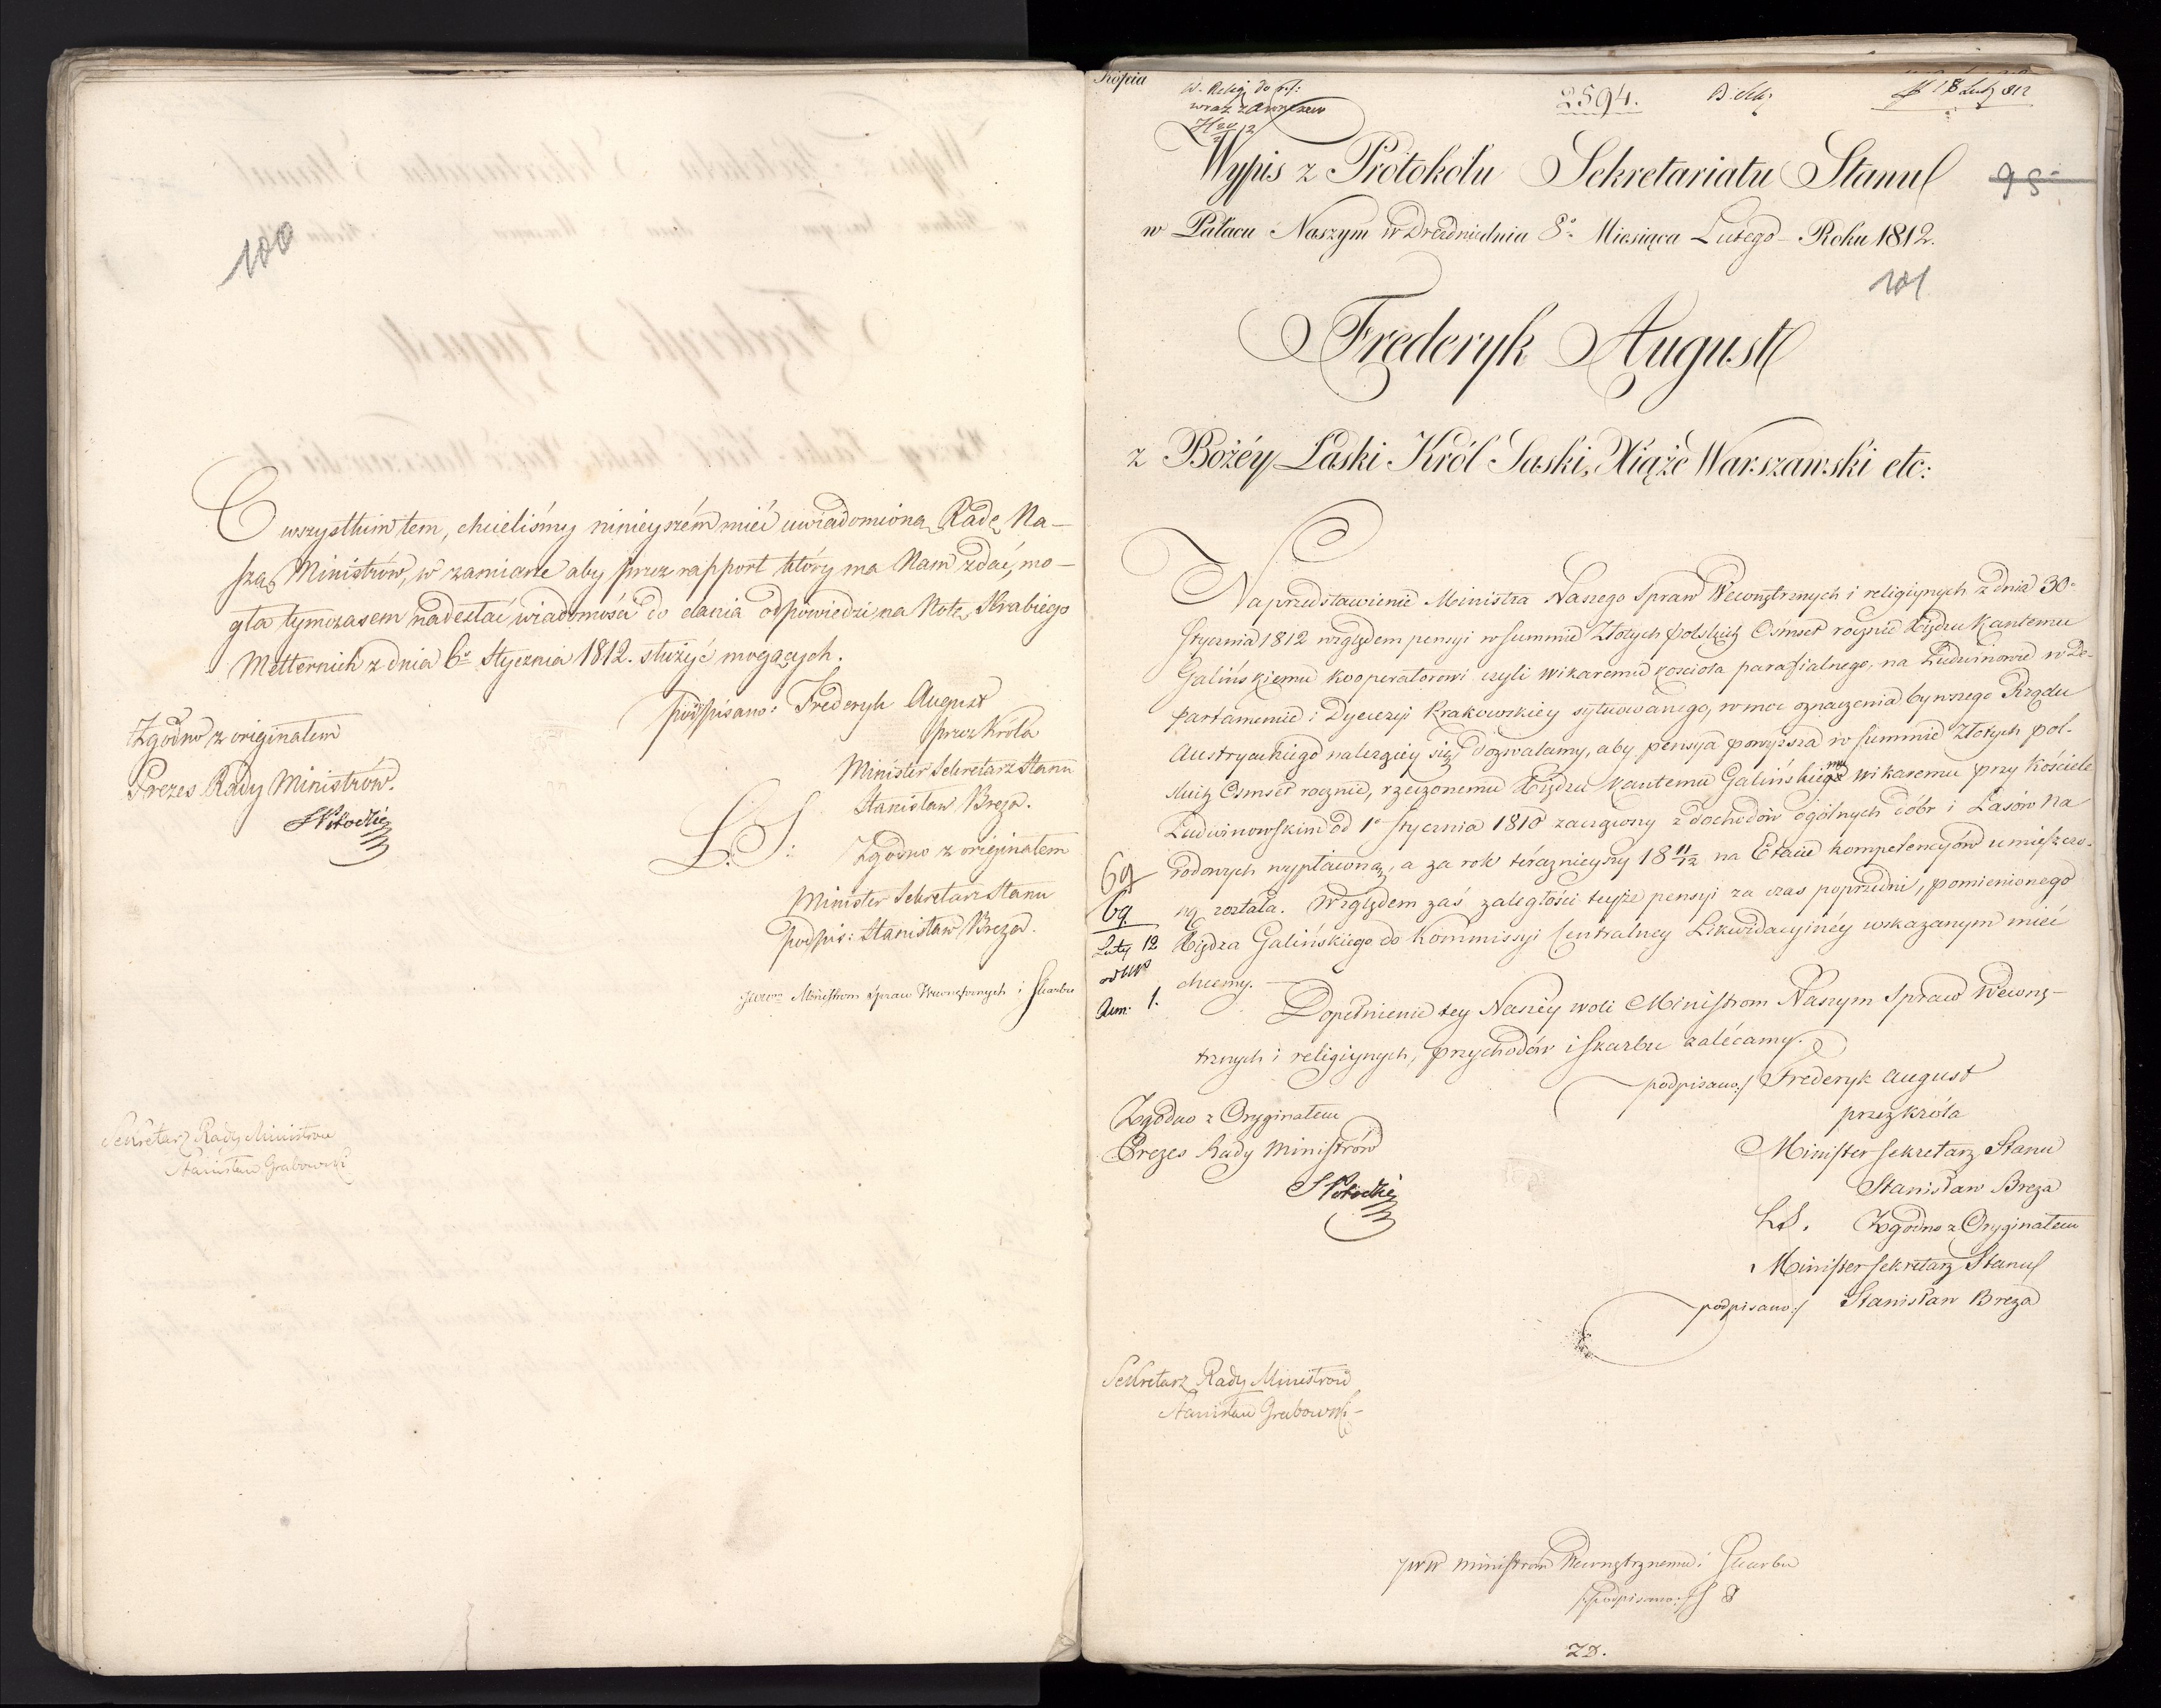 100
O wszystkim tem, chcieliśmy ninieyszém mieć uwiadomioną Radę Na-
szą Ministrów, w zamiarze aby przez rapport który ma Nam zdać, mo-
gła tymczasem nadesłać wiadomości do dania odpowiedzi na Notę Hrabiego
Metternich z dnia 6º Stycznia 1812. służyć mogących.
podpisano: Frederyk August
przez Króla
Minister Sekretarz Stanu
Stanisław Breza.
L. S: Zgodno z originałem
Minister Sekretarz Stanu
podpis: Stanisław Breza.
Zgodno z originałem
Prezes Rady Ministrów.
SPotocki
Ministrom Spraw Wewnętrznych i Skarbu
Sekretarz Rady Ministrów
Stanisław Grabowski
Kopia
W. Relig. do
wraz z
2594.
18 Luty 812
Wypis z Protokołu Sekretariatu Stanu
98
w Pałacu Naszym w Dreźnie dnia 8º Miesiąca Lutego Roku 1812.
101
Frederyk August
z Bożéy Łaski Król Saski, Xiąże Warszawski etc:
Na przedstawienie Ministra Naszego Spraw Wewnętrznych i religiynych z dnia 30º
Stycznia 1812 względem pensyi w summie Złotych polskich Ośmset rocznie Xiędzu Kantemu
Galińskiemu kooperatorowi czyli wikaremu kościoła parafialnego, na Ludwinowie w De-
partamencie i Dyecezyi Krakowskiey sytuowanego, w moc oznaczenia bywszego Rządu
Austryackiego należącey się, dozwalamy, aby pensya powyższa w summie Złotych pol-
skich Ośmset rocznie, rzeczonemu Xiędzu Kantemu Galińskiemu wikaremu przy Kościele
Ludwinowskim od 1º Stycznia 1810 zacząwszy z dochodów ogólnych dóbr i Lasów Na
rodowych wypłacaną, a za rok teraznieyszy 18 11/12 na Etacie kompetencyów umieszczo-
ną została. Względem zaś zaległości teyże pensyi za czas poprzedni, pomienionego
Xiędza Galińskiego do Kommissyi Centralney Likwidacyinéy wskazanym mieć
chcemy.
69
69
Luty 12
Aem: 1.
Dopełnienie tey Naszéy woli Ministrom Naszym Spraw Wewnę-
trznych i religiynych, przychodów i skarbu zalécamy.
podpisano:/ Frederyk August
przez króla
Minister sekretarz Stanu
Stanisław Breza
L.S. Zgodno z Oryginałem
Minister sekretarz Stanu
podpisano:/ Stanisław Breza
Zgodno z Oryginałem
Prezes Rady Ministrów
SPotocki
Sekretarz Rady Ministrów
Stanisław Grabowski
JWW Ministrów Wewnętrznemu i Skarbu
podpisano
ZD.